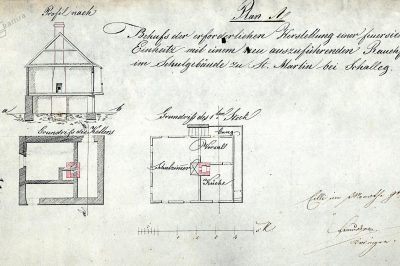 Profil nach
Plan A
Behufs der erforderlichen Herstellung einer feuersich
Einheitz mit einem neu auszuführenden Rauchf
im Schulgebäude zu St. Martin bei Schalleg
a
b
Grundriss des Kellers
Grundriss des 1ten Stock
gang
Vorsaal
Schulzimmer
Küche
Cilli am